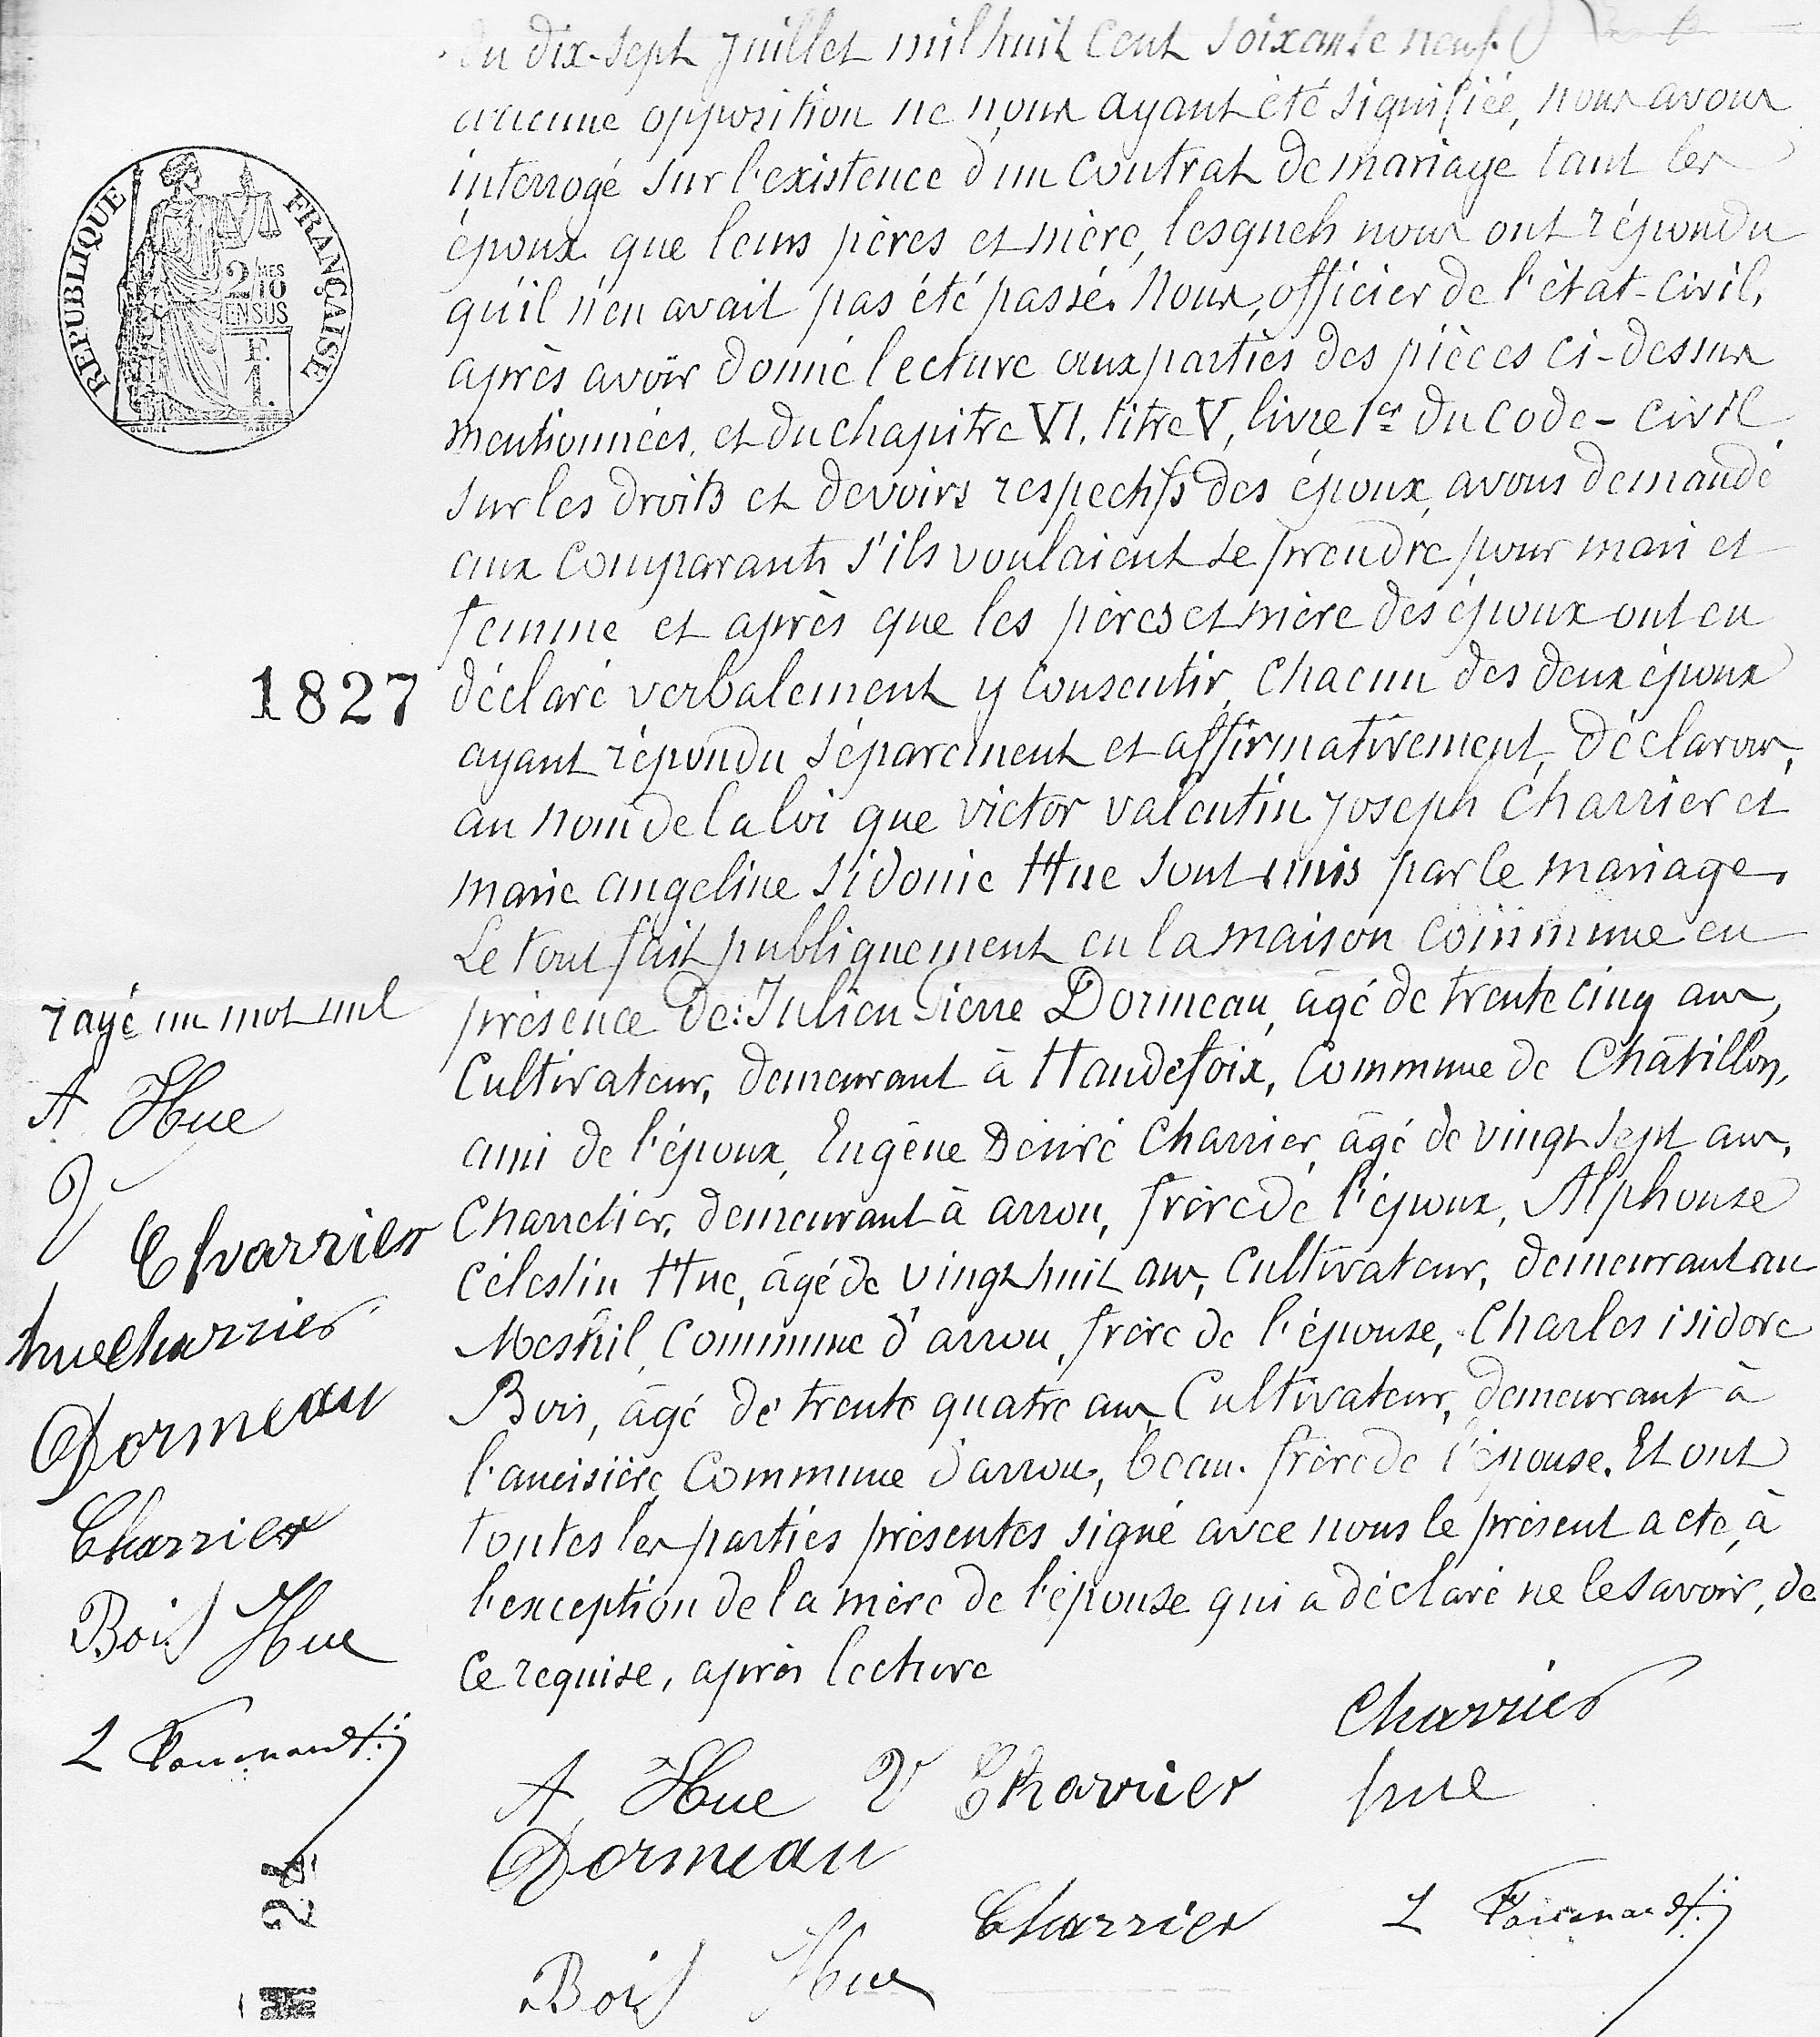 du dix-sept juillet mil huit cent soixante neuf.
aucune opposition ne nous ayant été signifiée, nous avons
interrogé sur l'existence d'un contrat de mariage tant les
époux que leurs pères et mère, lesquels nous ont répondu
qu'il n'en avait pas été passé. Nous, officier de l'état-civil,
après avoir donné lecture aux parties des pièces ci-dessus
mentionnées, et du chapitre VI, titre V, livre 1er du code-civil
sur les droits et devoirs respectifs des époux, avons demandé
aux comparants s'ils voulaient se prendre pour mari et
femme et après que les pères et mère des époux ont eu
déclaré verbalement y consentir, chacun des deux époux
ayant répondu séparement et affirmativement, déclarons,
au nom de la loi que victor valentin joseph Charrier et
marie angeline sidonie Hue sont unis par le mariage,
Le tout fait publiquement en la maison commune en
présence de: Julien Pierre Dormeau, âgé de trente cinq ans,
Cultivateur, demeurant à Haudefoix, Commune de Châtillon,
ami de l'époux, Eugène Désiré Charrier, âgé de vingt sept ans,
Charretier, demeurant à arrou, frère de l'époux, Alphonse
Célestin Hue, âgé de vingt huit ans, Cultivateur, demeurant au
Mesnil, Commune d'arrou, frère de l'épouse, Charles isidore
Bois, âgé de trente quatre ans, Cultivateur, demeurant à
l'ancisière, Commune d'arrou, beau-frère de l'épouse. Et ont
toutes les parties présentes signé avec nous le présent acte, à
l'exception de la mère de l'épouse qui a déclaré ne le savoir, de
ce requise, après lecture
Charrier
A Hue V Charrier hue
Dormeau
Charrier L
Bois Hue
REPUBLIQUE FRANÇAISE
2/10MES
EN SUS
F.
1.
1827
rayé un mot nul
A Hue
V Charrier
hue Charrier
Dormeau
Charrier
Bois Hue
L